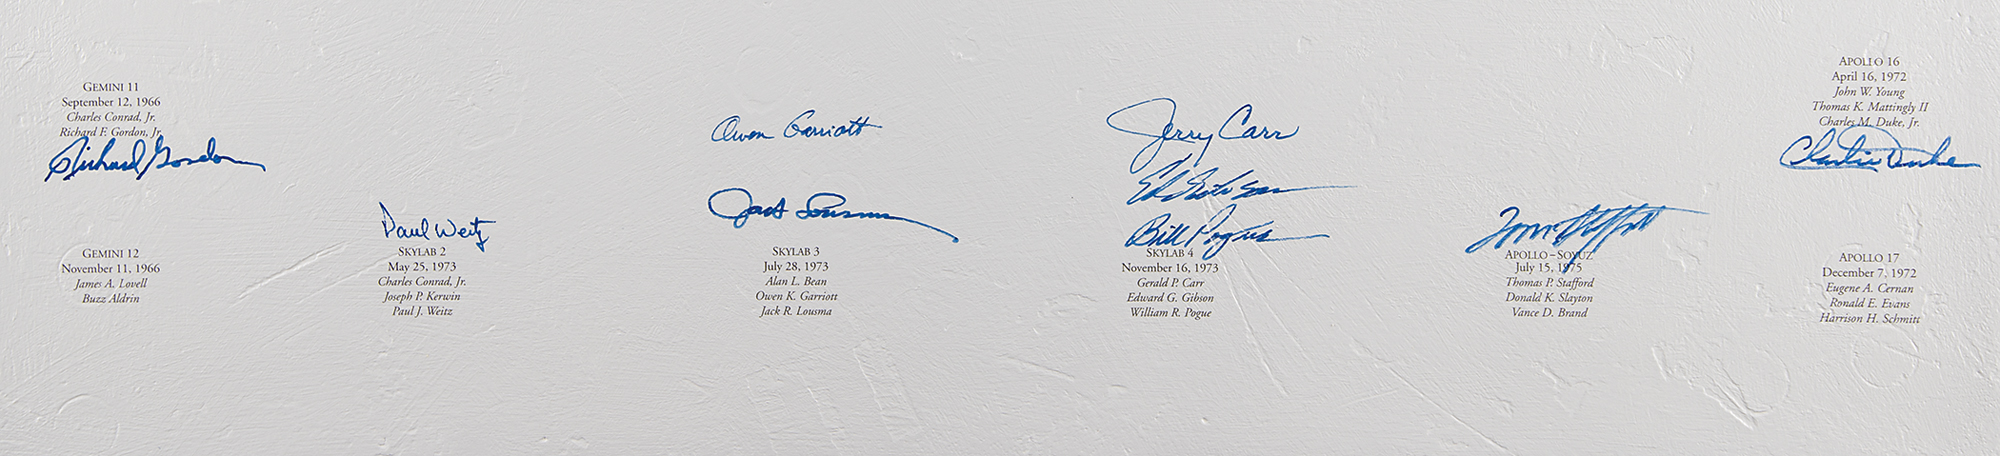 GEMINI 11
September 12, 1966
Charles Conrad, Jr.
Richard F. Gordon, Jr.
Richard Gordon
GEMINI 12
November 11, 1966
James A. Lovell
Buzz Aldrin
Paul Weitz
SKYLAB 2
May 25, 1973
Charles Conrad, Jr.
Joseph P. Kerwin
Paul J. Weitz
Owen Garriott
Jack Lousma
SKYLAB 3
July 28, 1973
Alan L. Bean
Owen K. Garriott
Jack R. Lousma
Jerry Carr
Ed Gibson
Bill Pogue
SKYLAB 4
November 16, 1973
Gerald P. Carr
Edward G. Gibson
William R. Pogue
Tom Stafford
APOLLO – SOYUZ
July 15, 1975
Thomas P. Stafford
Donald K. Slayton
Vance D. Brand
APOLLO 16
April 16, 1972
John W. Young
Thomas K. Mattingly II
Charles M. Duke, Jr.
Charlie Duke
APOLLO 17
December 7, 1972
Eugene A. Cernan
Ronald E. Evans
Harrison H. Schmitt